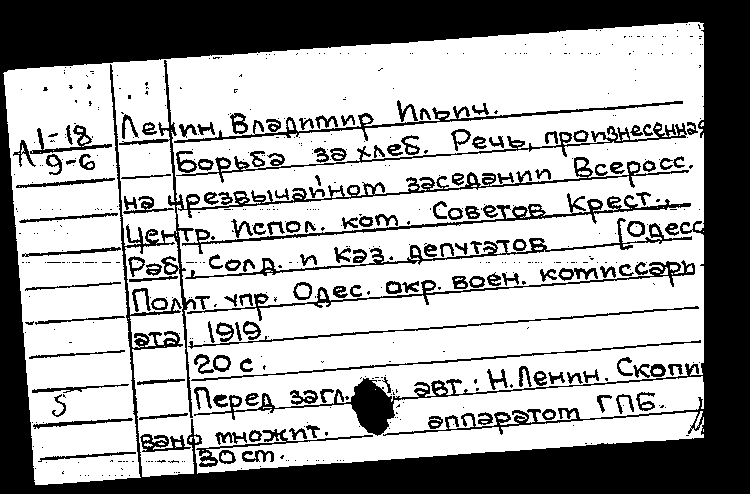 Л 1-18
9-6
Ленин, Владимир Ильич.
Борьба за хлеб. Речь, произнесенная
на чрезвычайном заседании Всеросс.
Центр. Испол. ком. Советов Крест.,
Раб., Солд. и Каз. депутатов [Одесс
Полит. упр. Одес. окр. воен. комиссари-
ата, 1919.
20 с.
Перед загл. авт.: Н.Ленин. Скопи
5
вано множит. аппаратом ГПБ.
30 см.